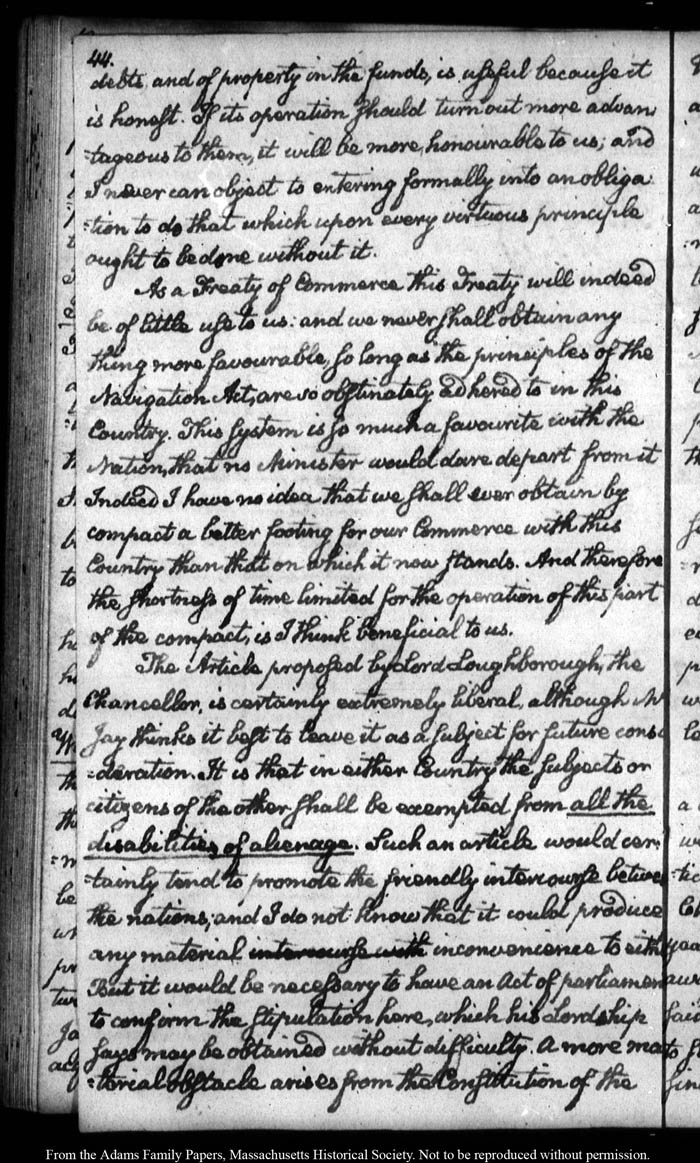 44.
debts, and of property in the funds, is useful because it
is honest. If its operation should turn out more advan
=tageous to them, it will be more honourable to us; and
I never can object to entering formally into an obliga
=tion to do that which upon every virtuous principle
ought to be done without it.
As a Treaty of Commerce this Treaty will indeed
be of little use to us: and we never shall obtain any
thing more favourable, so long as the principles of the
Navigation Act, are so obstinately adhered to in this
Country. This system is so much a favourite with the
Nation, that no Minister would dare depart from it
Indeed I have no idea that we shall ever obtain by
compact a better footing for our Commerce with this
Country than that on which it now stands. And therefore
the shortness of time limited for the operation of this part
of the compact, is I think beneficial to us.
The Article proposed by Lord Loughborough, the
Chancellor, is certainly extremely liberal, although M
Jay thinks it best to leave it as a subject for future consi
=deration. It is that in either Country the subjects or
citizens of the other shall be exempted from all the
disabilities of alienage. Such an article would cer,
=tainly tend to promote the friendly intercourse betwee
the nations; and I do not know that it could produce
any material intercourse with inconvenience to eith
But it would be necessary to have an Act of parliamen
to confirm the stipulation here, which his Lordship
says may be obtained without difficulty. A more ma
=terial obstacle arises from the Constitution of the
From the Adams Family Papers, Massachusetts Historical Society. Not to be reproduced without permission.